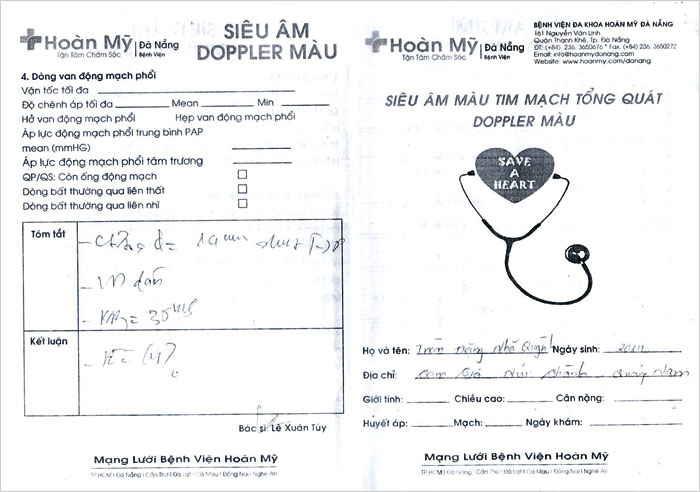 Hoàn Mỹ
Tận Tâm Chăm Sóc
Đà Nẵng
Bệnh viện
SIÊU ÂM
DOPPLER MÀU
4. Dòng van động mạch phổi
Vận tốc tối đa
Độ chênh áp tối đa Mean Min
Hở van động mạch phổi Hẹp van động mạch phổi
Áp lực động mạch phổi trung bình PAP
mean (mmHG)
Áp lực động mạch phổi tâm trương
QP/QS: Còn ống động mạch
Dòng bất thường qua liên thất
Dòng bất thường qua liên nhĩ
Tóm tắt
Kết luận
Bác sĩ: Lê Xuân Túy
Mạng Lưới Bệnh Viện Hoàn Mỹ
TP.HCM | Đà Nẵng | Cần Thơ | Đà Lạt | Cà Mau | Đồng Nai | Nghệ An
Hoàn Mỹ
Tận Tâm Chăm Sóc
Đà Nẵng
Bệnh viện
BỆNH VIỆN ĐA KHOA HOÀN MỸ ĐÀ NẴNG
161 Nguyễn Văn Linh
Quận Thanh Khê, Tp. Đà Nẵng
ĐT: (+84) 236. 3650676 * Fax. (+84) 236. 3650272
Email: info@hoanmydanang.com
Website: www.hoanmy.com/danang
SIÊU ÂM MÀU TIM MẠCH TỔNG QUÁT
DOPPLER MÀU
SAVE
A
HEART
Họ và tên: Trần Đặng Nhã Quỳnh Ngày sinh: 2011
Địa chỉ: Núi Thành Quảng Nam
Giới tính: Chiều cao: Cân nặng:
Huyết áp: Mạch: Ngày khám:
Mạng Lưới Bệnh Viện Hoàn Mỹ
TP.HCM | Đà Nẵng | Cần Thơ | Đà Lạt | Cà Mau | Đồng Nai | Nghệ An